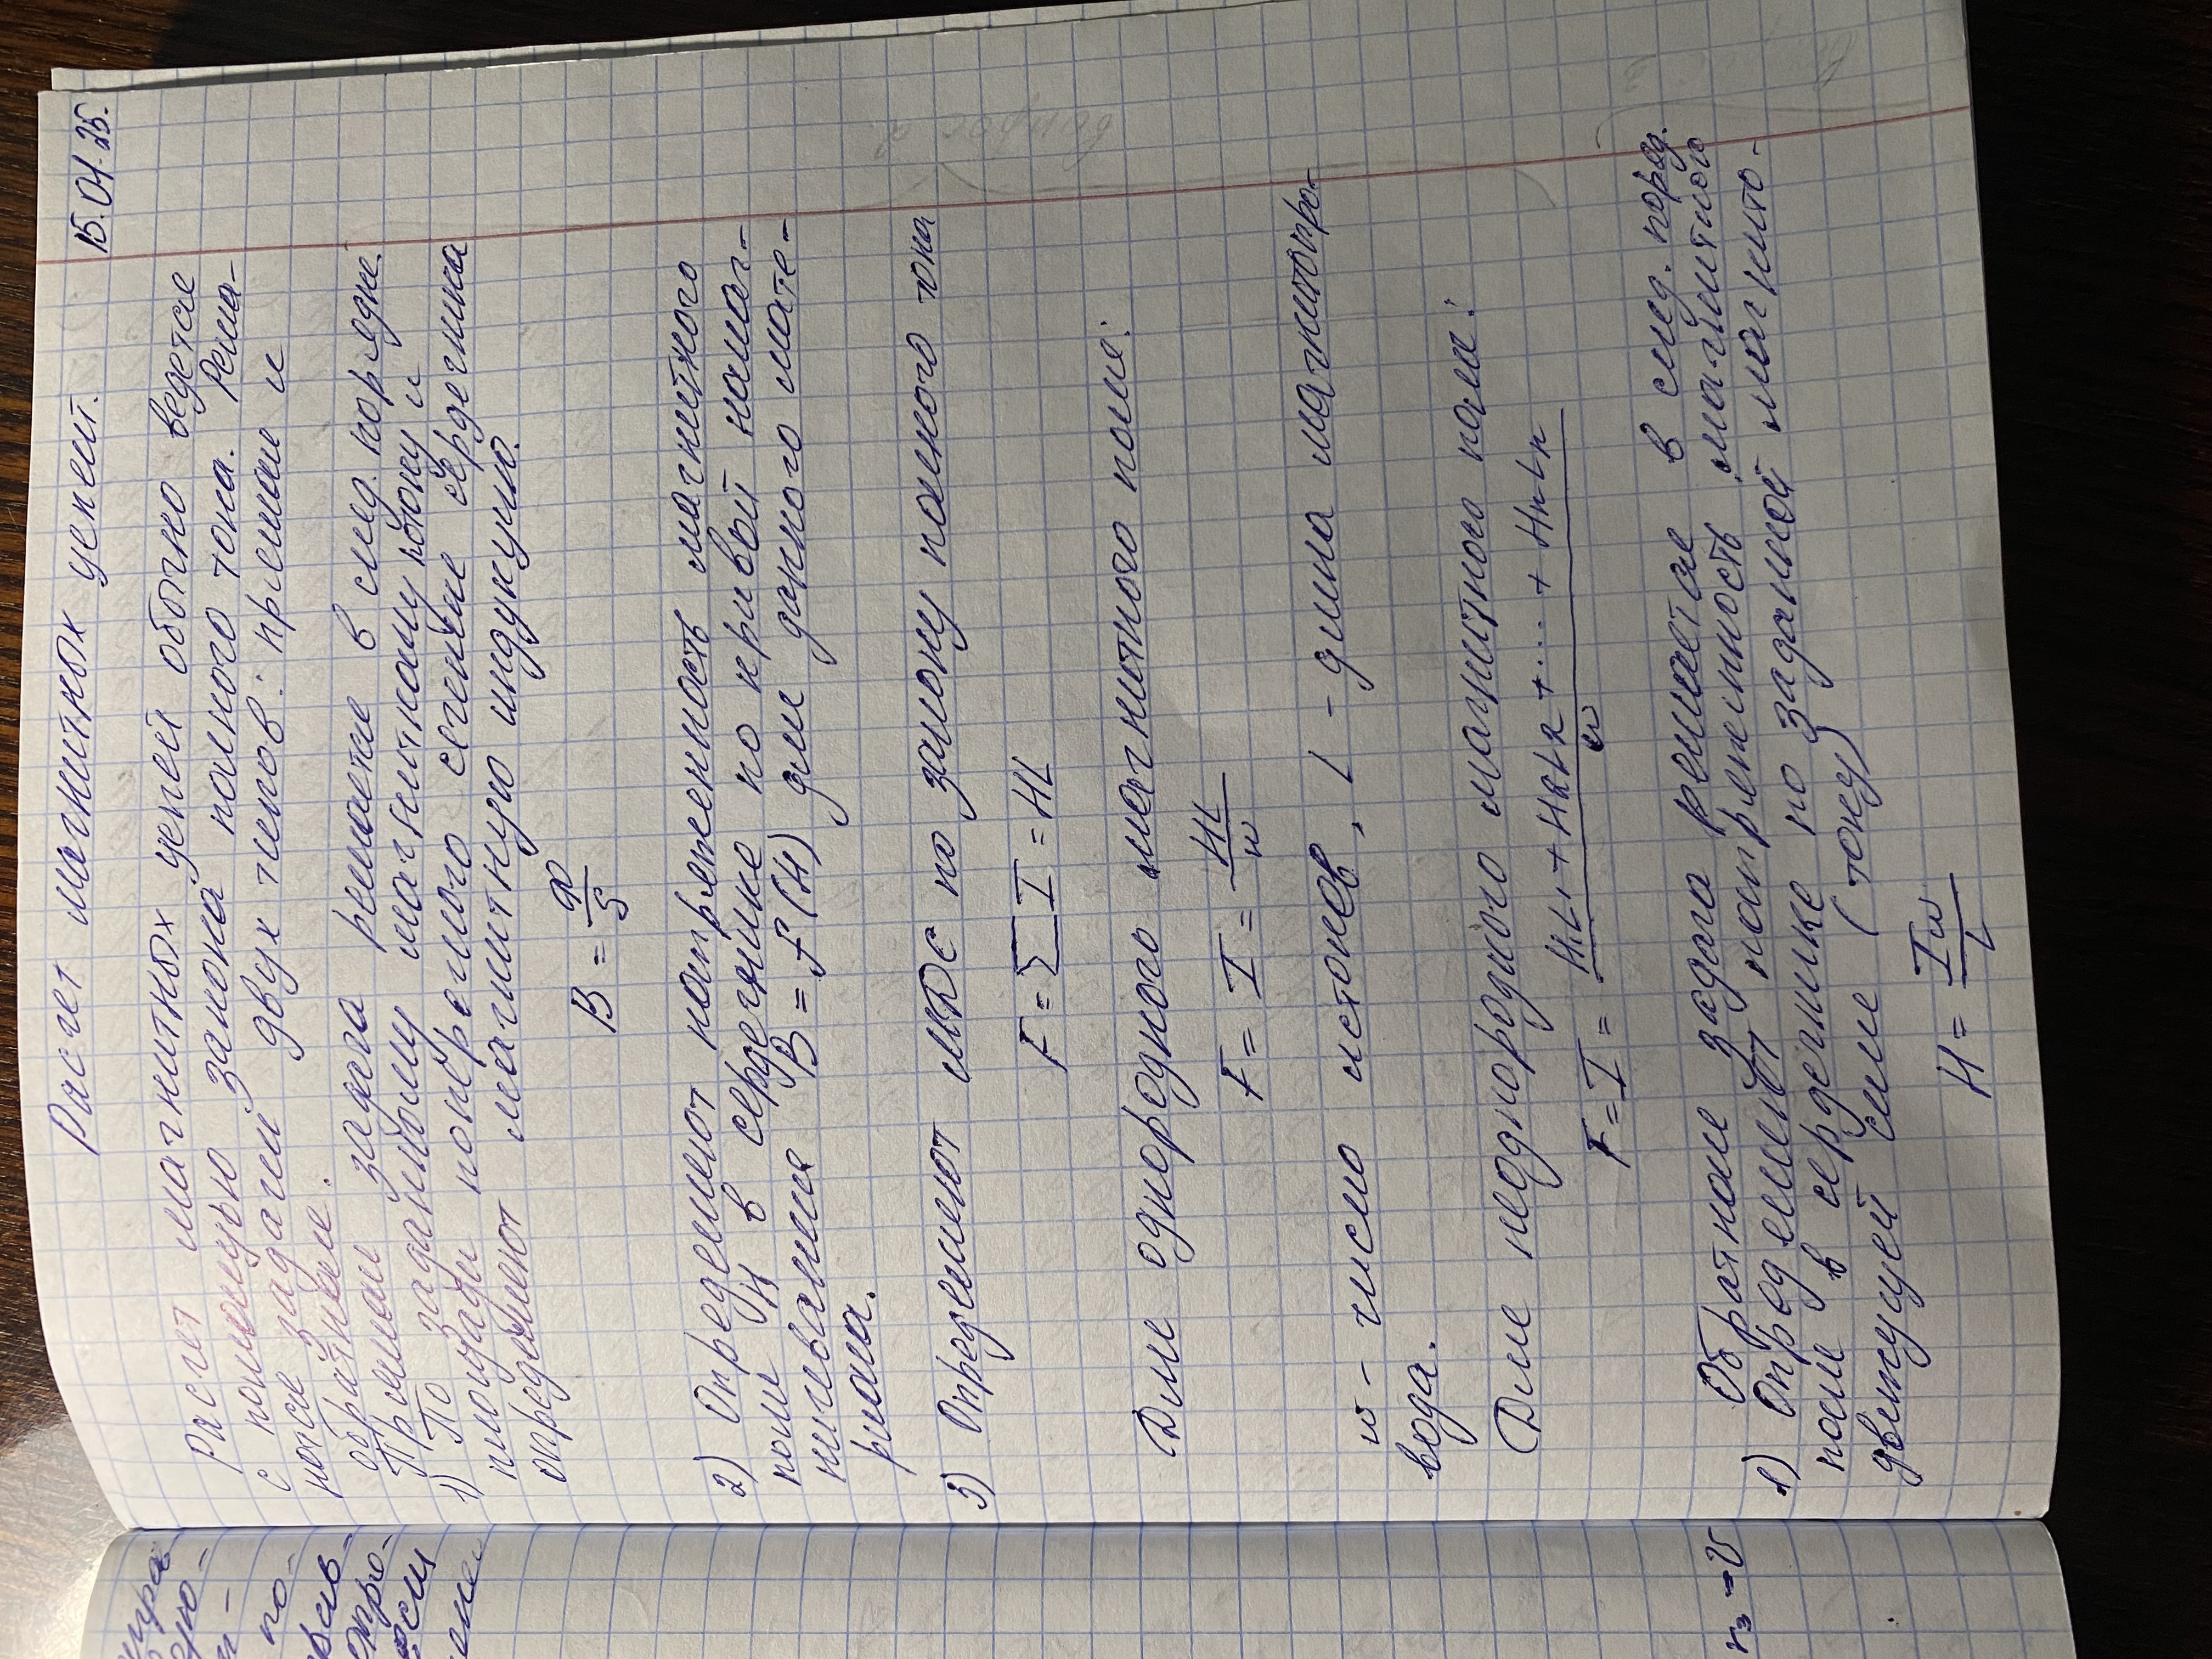 15.04.25.
Расчет магнитных цепей.
Расчет магнитных цепей обычно ведется
с помощью закона полного тока. Реша-
ются задачи двух типов: прямые и
обратные.
Прямая задача решается в след. порядке
1) По заданному магнитному потоку и
площади поперечного сечения сердечника
определяют магнитную индукцию.
B = Ф/S
2) Определяют напряженность магнитного
поля H в сердечнике по кривой намаг-
ничевания B = f(H) для данного мате-
риала.
3) Определяют МДС по закону полного тока
F = ΣI = HL
Для однородного магнитного поля:
F = I = HL/w
w - число истоков, L - длина магнитопро-
вода.
Для неоднородного магнитного поля:
F = I = (H₁L₁ + H₂L₂ + .... + HₙLₙ)/w
Обратная задача решается в след. поряд.
1) Определяют напряженность магнитного
поля в сердечнике по заданной магнито-
движущей силе (току)
H = Iw/L